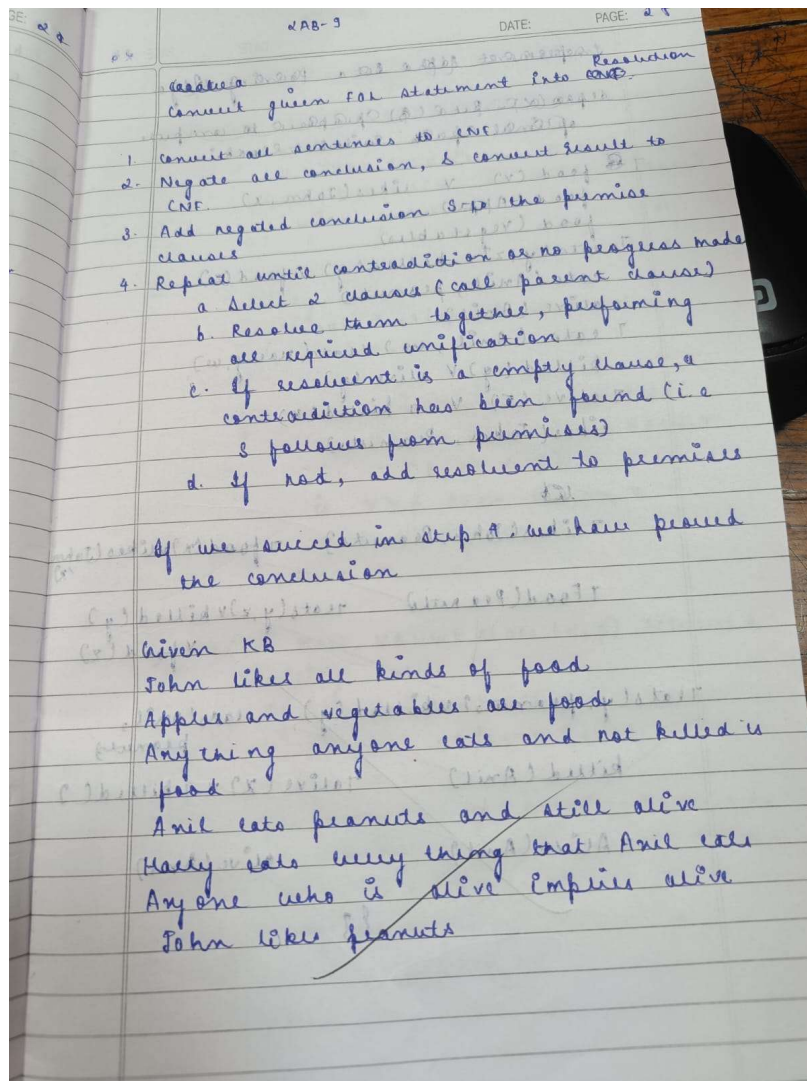 LAB-9
DATE:
PAGE: 29
Convert given FOL statement into Resolution
1. Convert all sentences to CNF
2. Negate all conclusion, S convert result to
CNF.
3. Add negated conclusion S to the premise
clauses
4. Repeat until contradiction or no progress made
a. Select 2 clauses (call parent clause)
b. Resolve them together, performing
all required unification
c. If resolvent is a empty clause, a
contradiction has been found (i.e
S follows from premises)
d. If not, add resolvent to premises
If we succeed in step 4. we have proved
the conclusion
Given KB
John likes all kinds of food
Apples and vegetables are food
Any thing anyone eats and not killed is
food
Anil eats peanuts and still alive
Harry eats every thing that Anil eats
Any one who is alive implies alive
John likes peanuts